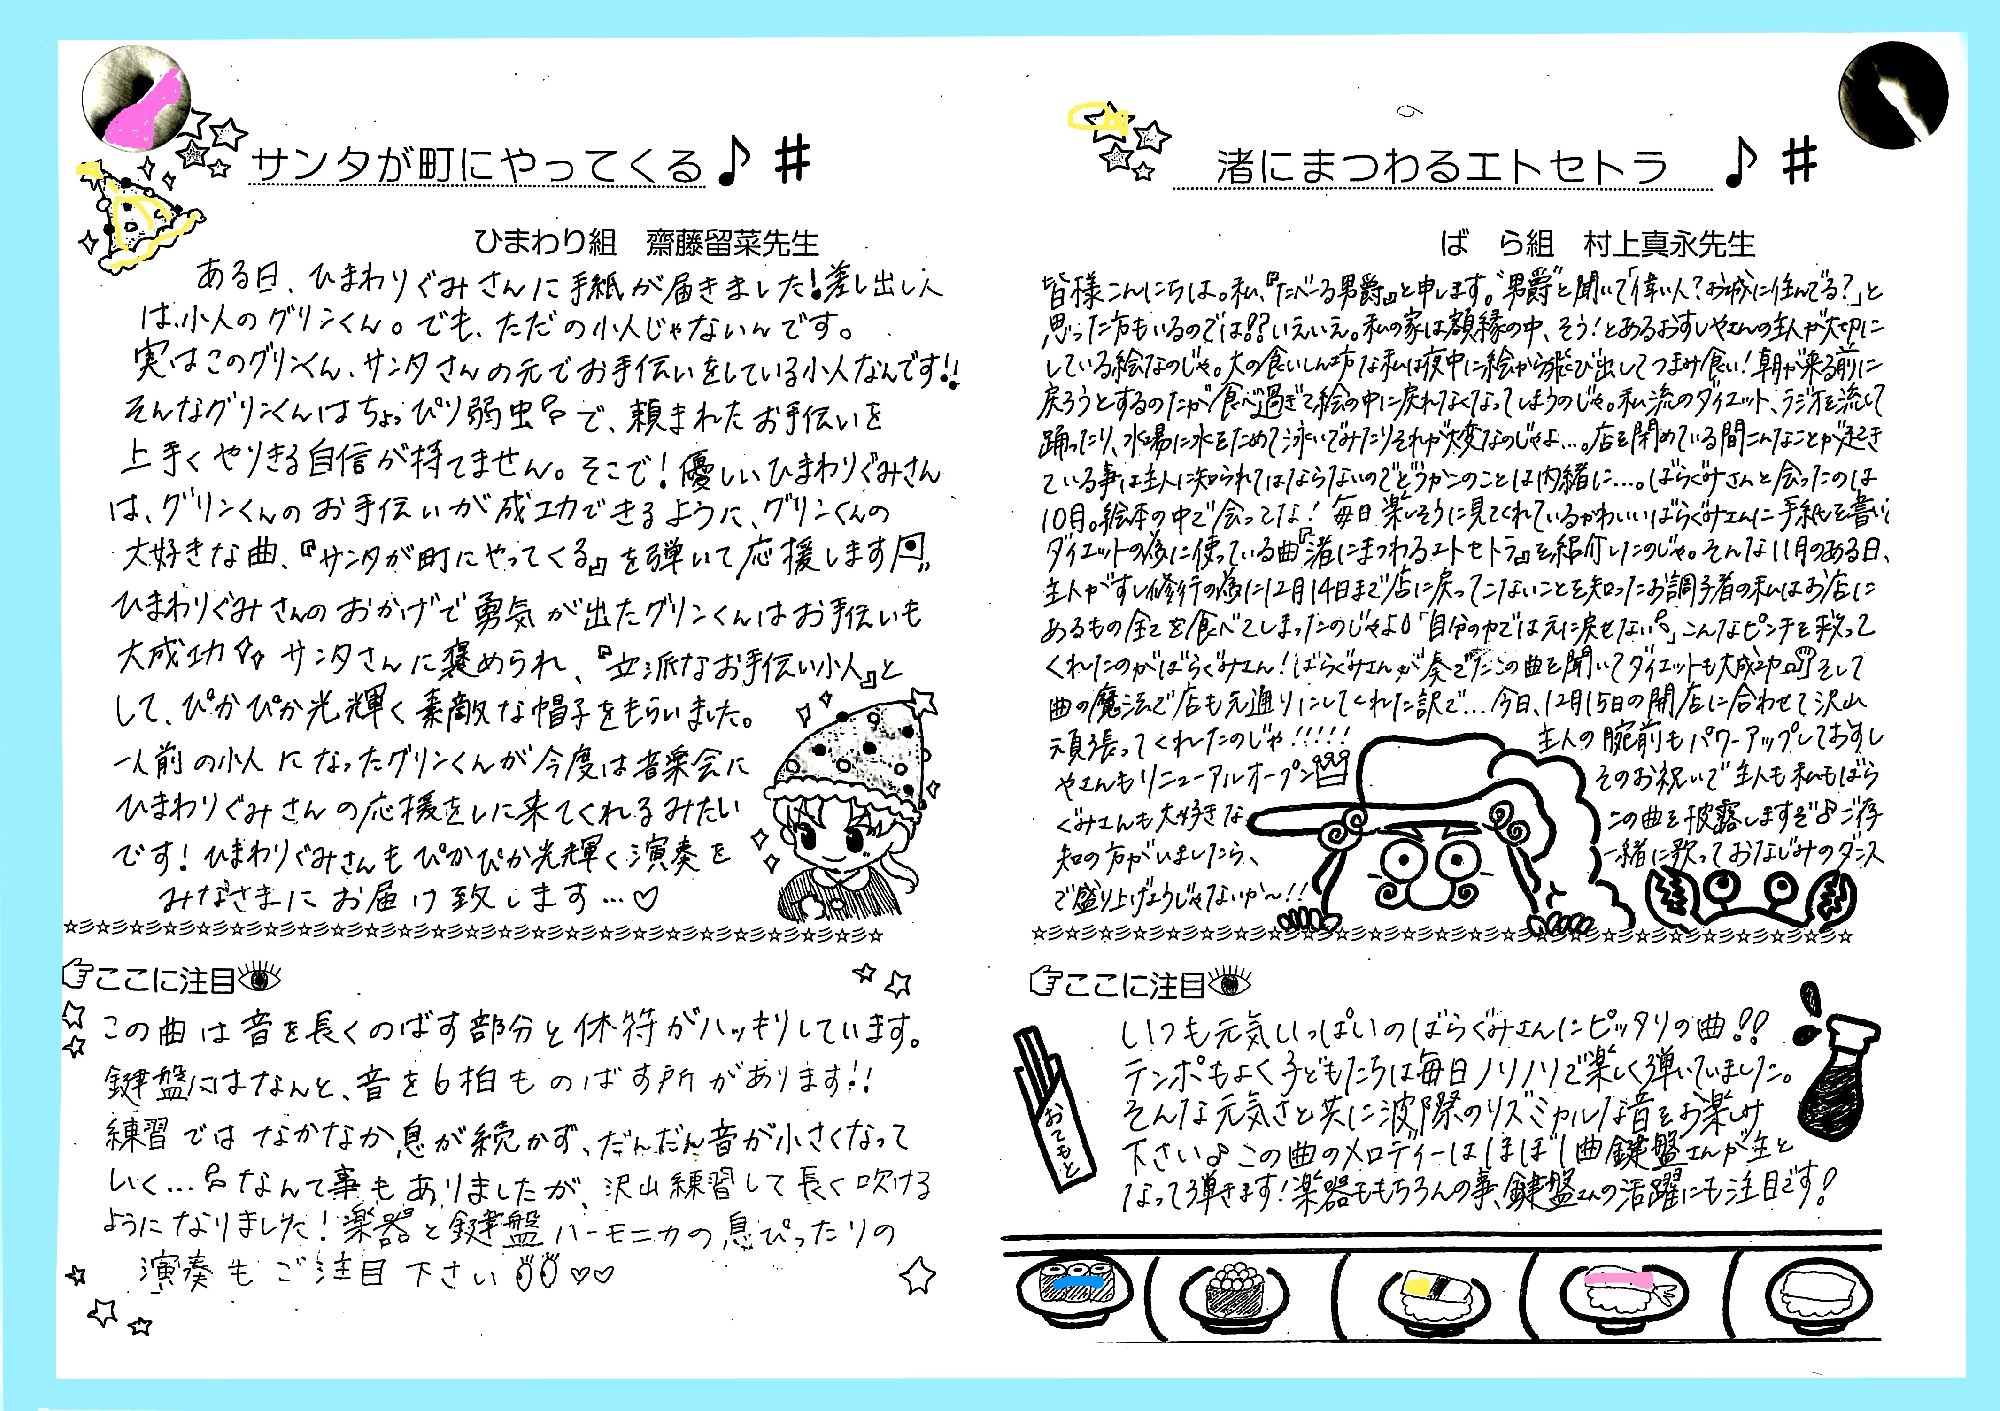 サンタが町にやってくる♪ #
ひまわり組 齋藤留菜先生
ある日、ひまわりぐみさんに手紙が届きました!差し出し人
は、小人のグリンくん。でも、ただの小人じゃないんです。
実はこのグリンくん、サンタさんの元でお手伝いをしている小人なんです!!
そんなグリンくんはちょっぴり弱虫で、頼まれたお手伝いを
上手くやりきる自信が持てません。そこで!優しいひまわりぐみさん
は、グリンくんのお手伝いが成功できるように、グリンくんの
大好きな曲、『サンタが町にやってくる』を弾いて応援します
ひまわりぐみさんのおかげで勇気が出たグリンくんはお手伝いも
大成功 サンタさんに褒められ、『立派なお手伝い小人』と
して、ぴかぴか光輝く素敵な帽子をもらいました。
一人前の小人になったグリンくんが今度は音楽会に
ひまわりぐみさんの応援をしに来てくれるみたい
です!ひまわりぐみさんもぴかぴか光輝く演奏を
みなさまにお届け致します…♡
ここに注目
この曲は音を長くのばす部分と休符がハッキリしています。
鍵盤にはなんと、音を6拍ものばす所があります!!
練習ではなかなか息が続かず、だんだん音が小さくなって
いく…なんて事もありましたが、沢山練習して長く吹ける
ようになりました!楽器と鍵盤ハーモニカの息ぴったりの
演奏もご注目下さい♡♡
渚にまつわるエトセトラ ♪ #
ば ら組 村上真永先生
皆様こんにちは。私、『たべる男爵』と申します。“男爵”と聞いて「偉い人?お城に住んでる?」と
思った方もいるのでは!?いえいえ。私の家は額縁の中、そう!とあるおすしやさんの主人が大切に
している絵なのじゃ。大の食いしん坊な私は夜中に絵から飛び出してつまみ食い!朝が来る前に
戻ろうとするのだが食べ過ぎて絵の中に戻れなくなってしまうのじゃ。私流のダイエット、ラジオを流して
踊ったり、水場に水をためて泳いでみたりそれが大変なのじゃよ…。店を閉めている間こんなことが起き
ている事は主人に知られてはならないのでどうかこのことは内緒に…。ばらぐみさんと会ったのは
10月。絵本の中で会ってな!毎日楽しそうに見てくれているかわいいばらぐみさんに手紙を書いて
ダイエットの為に使っている曲『渚にまつわるエトセトラ』を紹介したのじゃ。そんな11月のある日、
主人がすし修行の為に12月14日まで店に戻ってこないことを知ったお調子者の私はお店に
あるもの全てを食べてしまったのじゃよ♪「自分の力では元に戻せない」こんなピンチを救って
くれたのがばらぐみさん!ばらぐみさんが奏でたこの曲を聞いてダイエットも大成功 そして
曲の魔法で店も元通りにしてくれた訳で…今日、12月15日の開店に合わせて沢山
頑張ってくれたのじゃ!!!!! 主人の腕前もパワーアップしておすし
やさんもリニューアルオープン そのお祝いで主人も私もばら
ぐみさんも大好きな この曲を披露しますぞ♪ご存
知の方がいましたら、 一緒に歌っておなじみのダンス
で盛り上げようじゃないか〜!!
ここに注目
いつも元気いっぱいのばらぐみさんにピッタリの曲!!
テンポもよく子どもたちは毎日ノリノリで楽しく弾いていました。
そんな元気さと共に波際のリズミカルな音をお楽しみ
下さい♪この曲のメロディーはほぼ1曲鍵盤さんが主と
なって弾きます!楽器ももちろんの事、鍵盤さんの活躍にも注目です!
おてもと